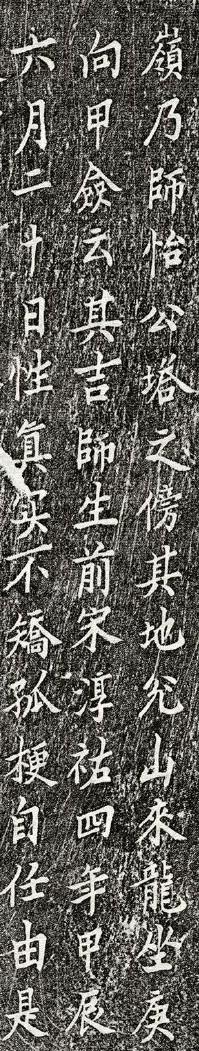 嶺乃師怡公塔之傍其地兊山來龍坐庚
向甲僉云其吉師生前宋淳祐四年甲辰
六月二十日性真实不矯孤梗自任由是